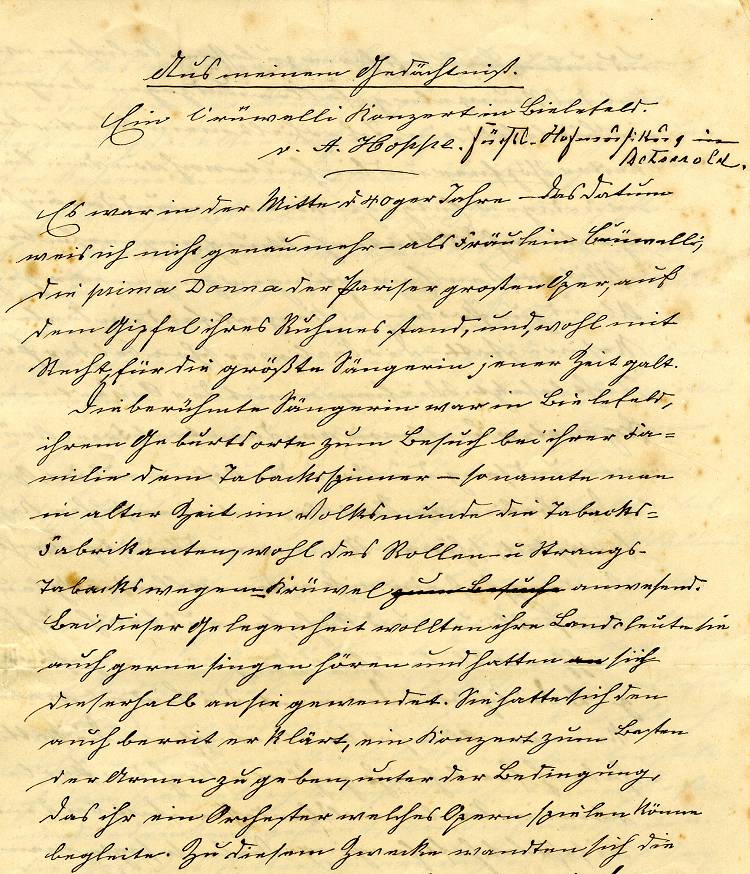 Aus meinem Gedächtniß.
Ein Crüwelli Konzert in Bielefeld.
v. A. Hoppe. fürstl. Hofmusikus in
Detmold.
Es war in der Mitte d 40ger Jahre – das Datum
weis ich nicht genau mehr – als Fräulein Crüwelli,
die prima Donna der Pariser grosten Oper, auf
dem Gipfel ihres Ruhmes stand, und, wohl mit
Recht, für die größte Sängerin jener Zeit galt.
Die berühmte Sängerin war in Bielefeld,
ihrem Geburtsorte zum Besuch bei ihrer Fa=
milie dem Tabacksspinner – so nannte man
in alter Zeit im Volksmunde die Tabacks=
Fabrikanten, wohl des Rollen- u Strangs-
Tabacks wegen – Krüwel zum Besuche anwesend.
Bei dieser Gelegenheit wollten ihre Landsleute sie
auch gerne singen hören und hatten an sich
dieserhalb an sie gewendet. Sie hatte sich den
auch bereit erklärt, ein Konzert zum Besten
der Armen zu geben, unter der Bedingung,
das ihr ein Orchester welches Opern spielen könne
begleite. Zu diesem Zwecke wandten sich die